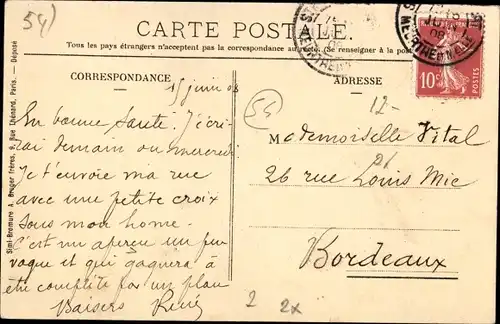 54)
CARTE POSTALE.
Tous les pays étrangers n'acceptent pas la correspondance au recto. (Se renseigner à la poste)
CORRESPONDANCE
ADRESSE
15 juin 08
En bonne santé. J'écri-
rai demain ou mercredi
Je t'envoie ma rue
avec une petite croix
sous mon home.
C'est un aperçu un peu
vague et qui gagnera à
être complété par un plan
Baisers René
54
12-
Mademoiselle Vital
26
26 rue Louis Mie
Bordeaux
2 2x
10c
Simi-Bromure A. Breger frères, 9, Rue Thénard, Paris. — Déposé